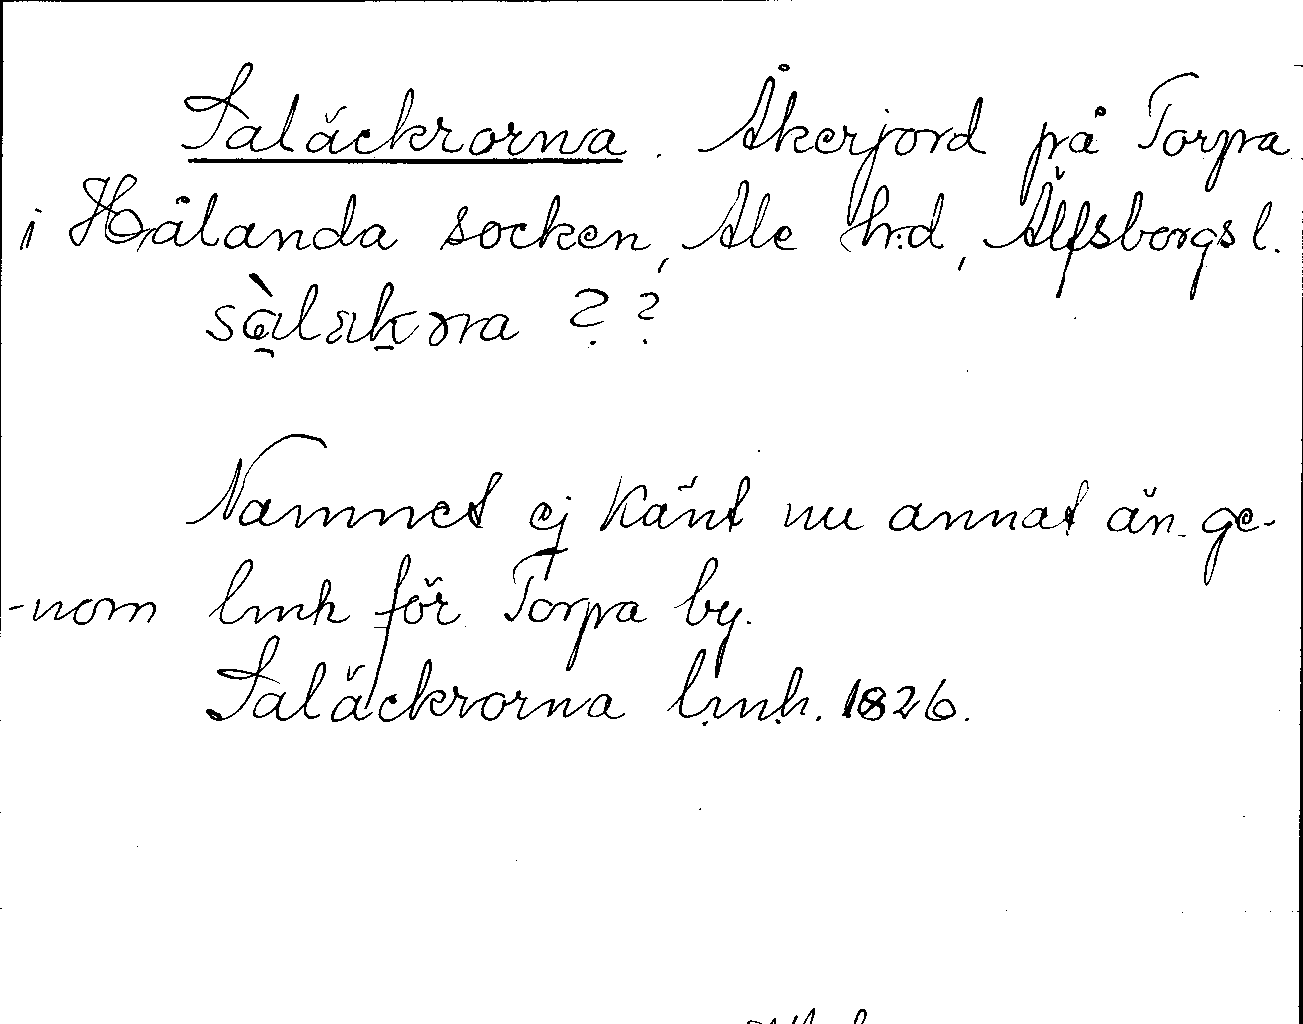 Saläckrorna. Åkerjord på Torpa
i Hålanda socken, Ale h:d, Älfsborgs l.
sàlækrna ??
Namnet ej känt nu annat än ge-
-nom lmh för Torpa by.
Saläckrorna l.m.h. 1826.